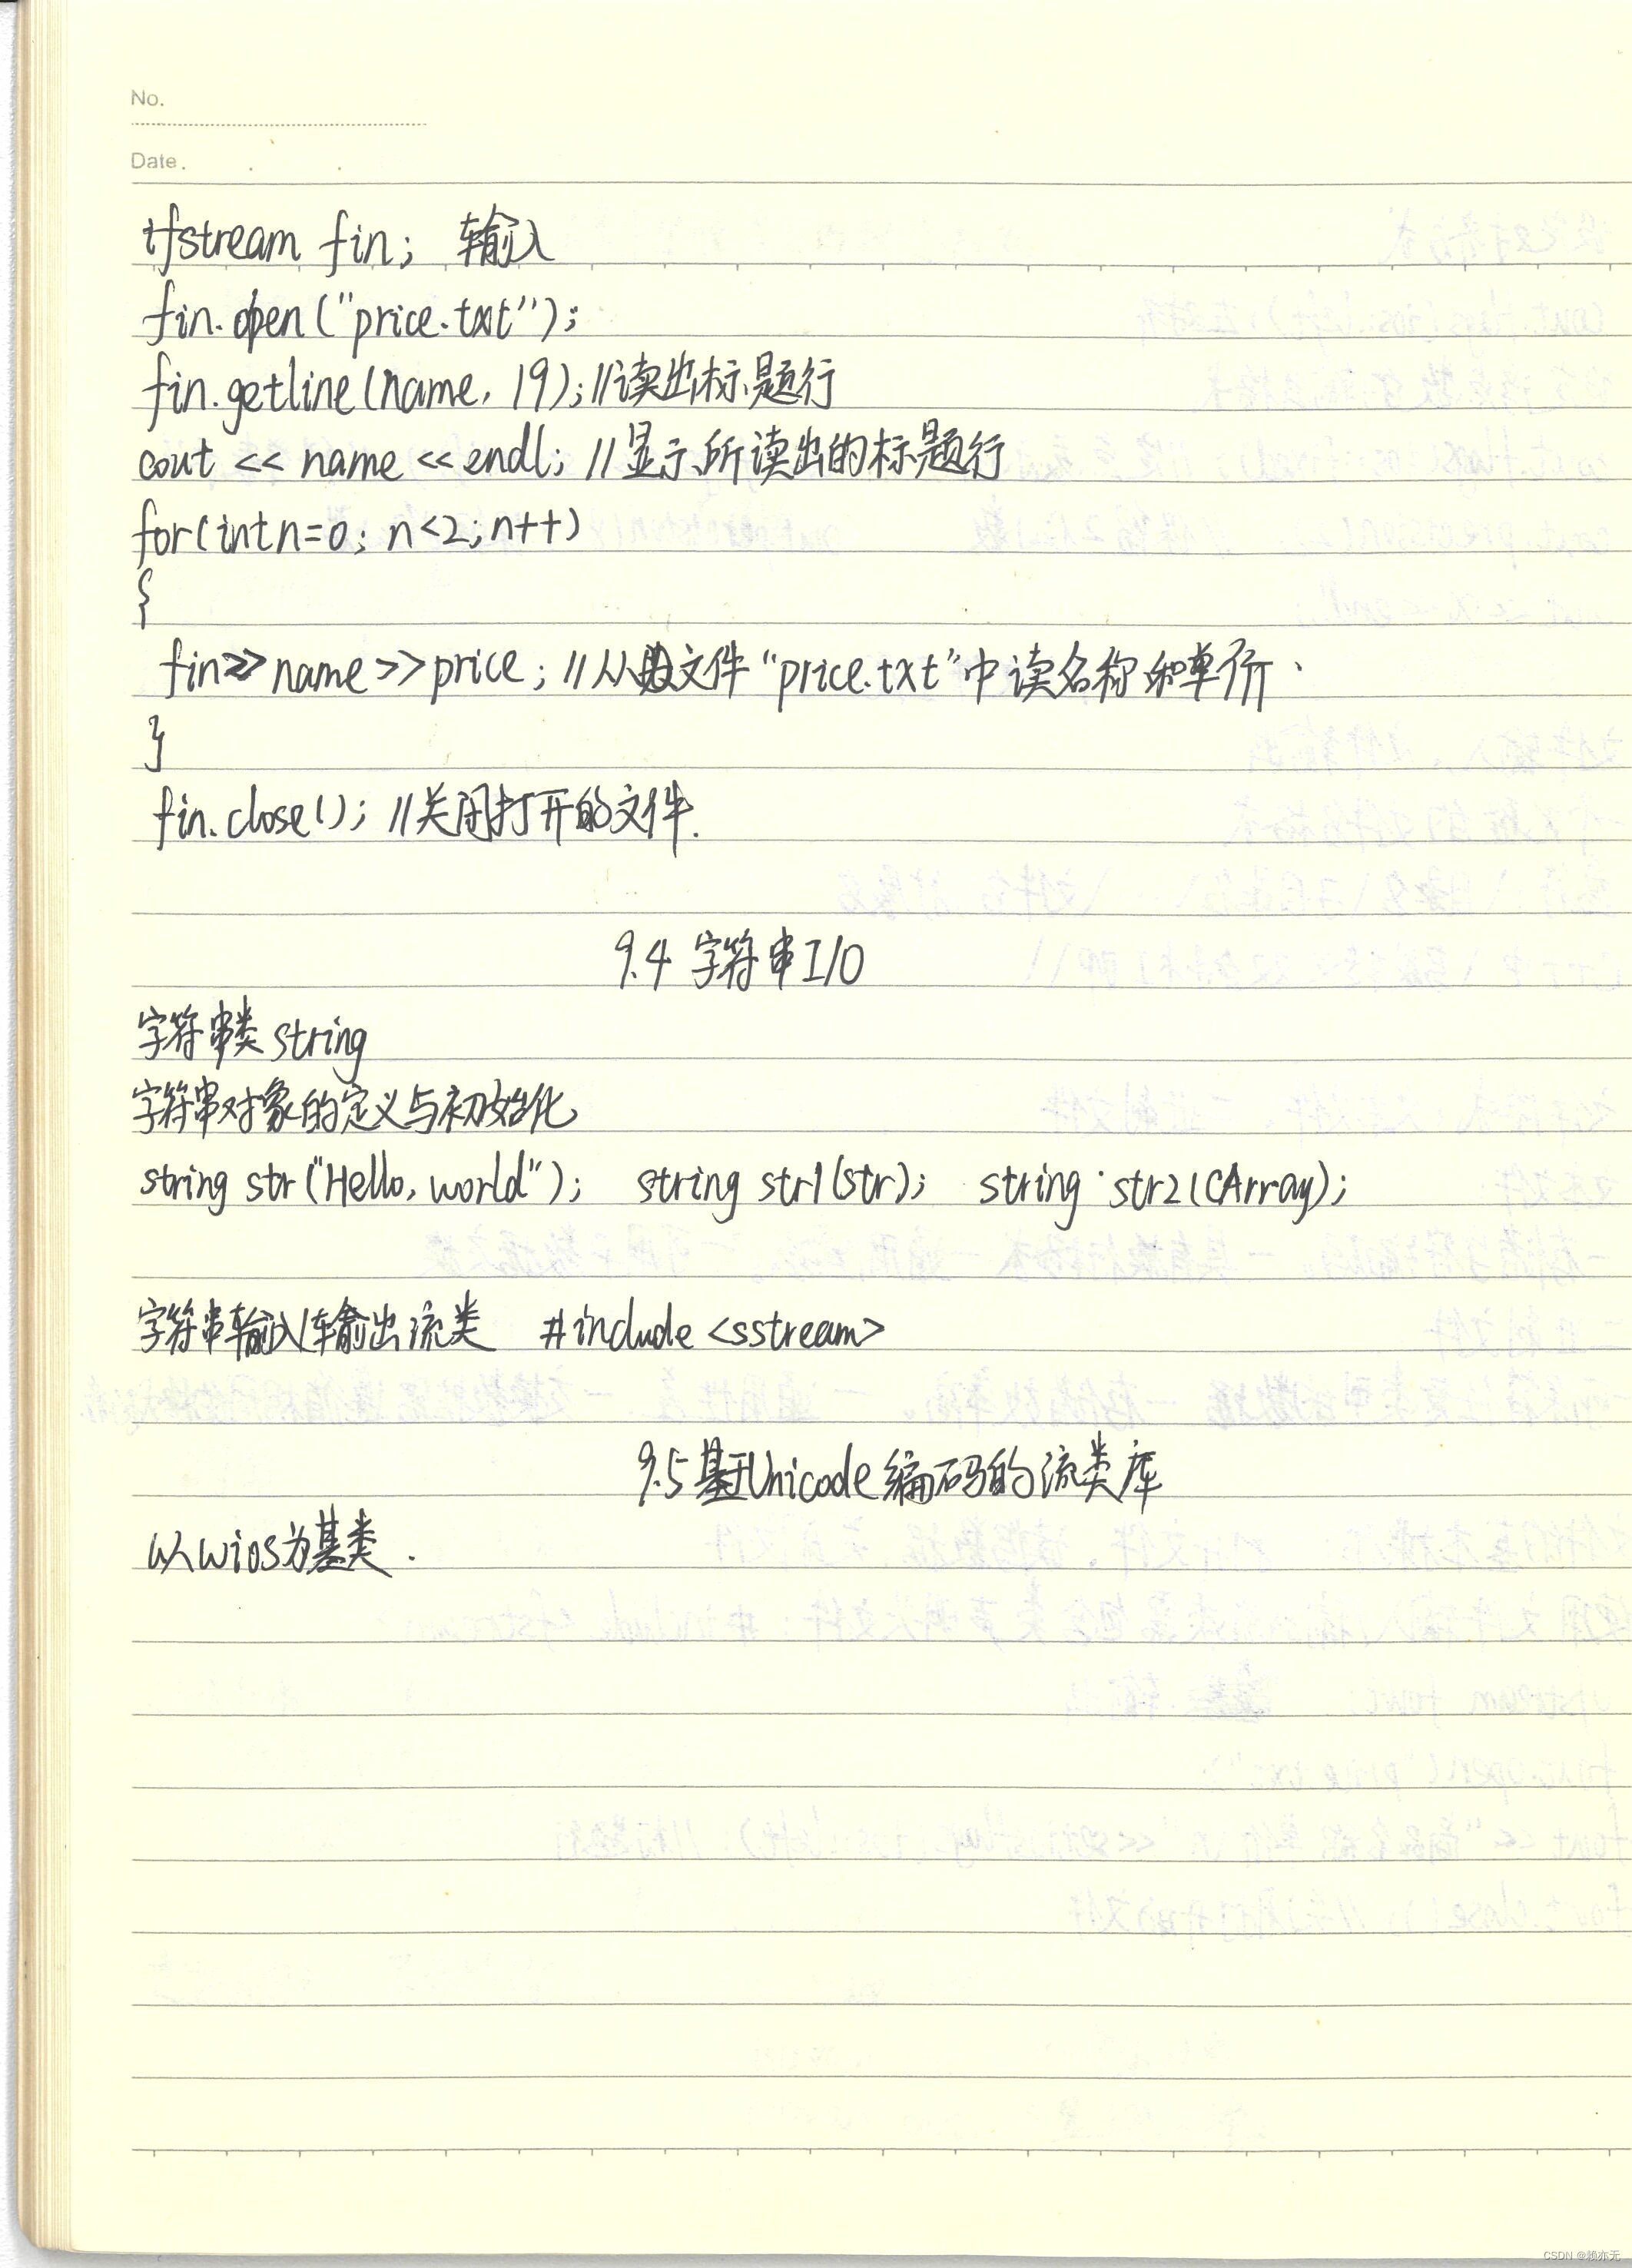 No.
Date.
ifstream fin; 输入
fin.open("price.txt");
fin.getline(name, 19); //读出标题行
cout << name << endl; //显示所读出的标题行
for(int n=0; n<2; n++)
{
fin>>name>>price; //从文件"price.txt"中读名称和单价.
}
fin.close(); //关闭打开的文件.
9.4 字符串I/O
字符串类 string
字符串对象的定义与初始化
string str("Hello, world"); string str1(str); string str2(CArray);
字符串输入/输出流类 #include <sstream>
9.5 基于Unicode编码的流类库
以wios为基类.
CSDN @赖亦无